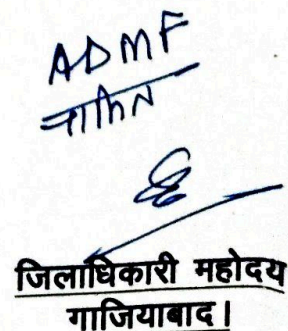 ADMF
जिलाधिकारी महोदय
गाजियाबाद।